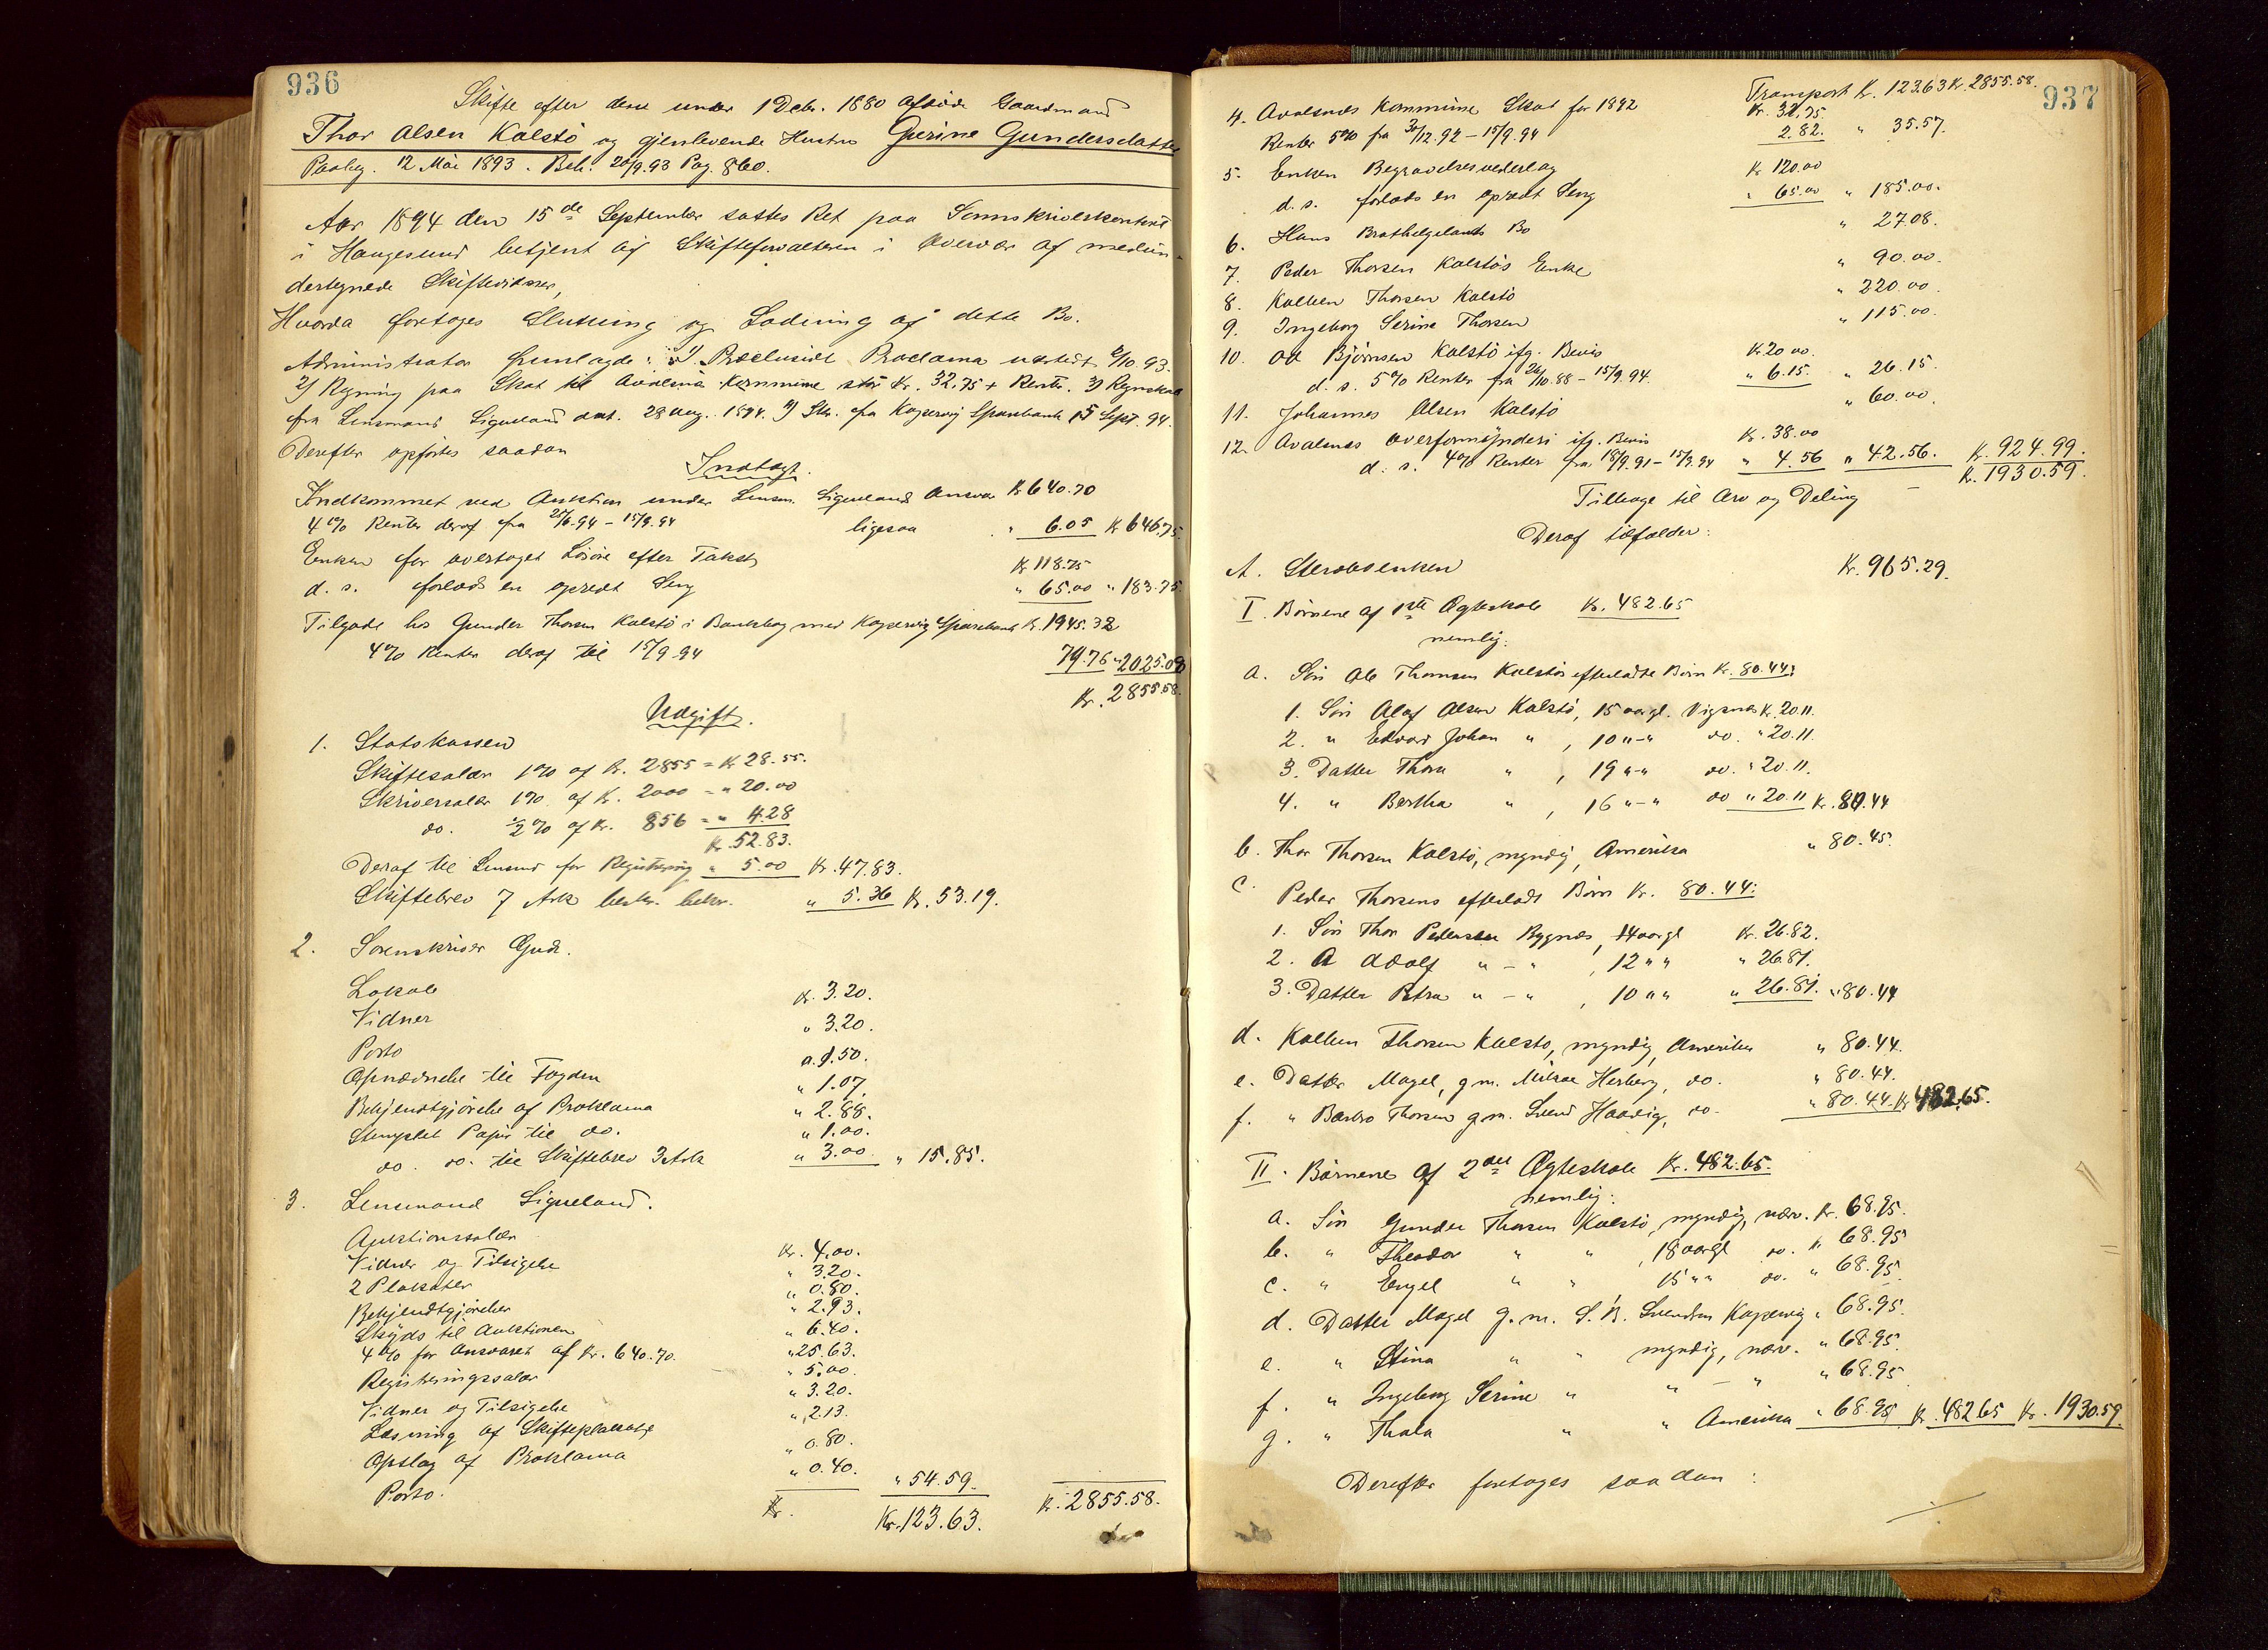 936
Skifte efter den under 1 Decbr. 1880 afdøde Gaardmand
Thor Olsen Kalstö og gjenlevende Hustru Gurine Gundersdatter
Paabeg. 12 Mai 1893. Beh. 20/9.93 Pag. 860.
Aar 1894 den 15de September sattes Ret paa Sorenskriverkontoret
i Haugesund betjent af Skifteforvalteren i Overvær af medun-
dertegnede Skiftevidner,
Hvorda foretoges Slutning og Lodning af dette Bo.
Administrator fremlagde: 1) Præclusivt Proclama udstedt 2/10.93.
2) Regning paa Skat til Avalsnæs Kommune stor Kr. 32.75 + Renter. 3) Regnskab
fra Lensmand Ligneland dat. 28 Aug. 1894. 4) Skr. fra Kopervig Sparebank 15 Sept. 94.
Derefter opførtes saadan
Indtægt.
Indkommet ved Auktion under Lensm. Lignelands Ansvar Kr 640.70
4% Renter deraf fra 25/6.94 – 15/9.94 ligesaa " 6.05 Kr 646.75
Enken for overtaget Løsøre efter Takst Kr 118.75
d. s. forlods en opredt Seng " 65.00 " 183.75
Tilgode hos Gunder Thorsen Kalstö i Bankbog med Kopervig Sparebank Kr. 1945.32
4% Renter deraf til 15/9 94 79.76 " 2025.08
Kr. 2855.58.
Udgift.
1. Statskassen
Skiftesalær 1% af Kr. 2855 = Kr 28.55.
Skriversalær 1% af Kr. 2000 = " 20.00
do. ½% af Kr. 856 = " 4.28
Kr. 52.83.
Deraf til Lensmd for Registrering " 5.00 Kr. 47.83.
Skiftebrev 7 Ark beskr. bekr. " 5.36 Kr. 53.19.
2. Sorenskriver Gude.
Lokale Kr. 3.20.
Vidner " 3.20.
Porto " 1.50.
Opnævnelse til Fogden " 1.07.
Bekjendtgjørelse af Proklama " 2.88.
Stemplet Papir til do. " 1.00.
do. do. til Skiftebrev 3 Ark " 3.00. " 15.85.
3. Lensmand Ligneland.
Auktionssalær Kr. 4.00.
Vidner og Tilsigelse " 3.20.
2 Plakater " 0.80.
Bekjendtgjørelser " 2.93.
Skyds til Auktionen " 6.40.
4% for Ansvaret af Kr. 640.70. " 25.63.
Registreringssalær " 5.00.
Vidner og Tilsigelse " 3.20.
Læsning af Skifteplakat " 2.13.
Opslag af Proklama " 0.80.
Porto. " 0.40. " 54.59.
Kr. Kr. 123.63. Kr. 2855.58.
937
Transport Kr. 123.63 Kr. 2855.58.
4. Avalsnæs Kommune Skat for 1892 Kr. 32.75.
Renter 5% fra 30/12.92 – 15/9.94 2.82. " 35.57.
5. Enken Begravelsesvederlag Kr 120.00
d. s. forlods en opredt Seng " 65.00 " 185.00.
6. Hans Brathelgelands Bo " 27.08.
7. Peder Thorsen Kalstös Enke " 90.00.
8. Kolben Thorsen Kalstö " 220.00.
9. Ingeborg Serine Thorsen " 115.00.
10. Ole Bjørnsen Kalstö ifg. Bevis Kr. 20.00.
d. s. 5% Renter fra 26/10.88 – 15/9.94. " 6.15. " 26.15.
11. Johannes Olsen Kalstö " 60.00.
12. Avalsnæs Overformynderi ifg. Bevis Kr. 38.00
d. s. 4% Renter fra 18/9.91 – 15/9.94 " 4.56 " 42.56. Kr. 924.99.
Tilbage til Arv og Deling – Kr. 1930.59.
Deraf tilfalder:
A. Stervbsenken Kr. 965.29.
I. Børnene af 1ste Ægteskab Kr. 482.65
nemlig:
a. Søn Ole Thomsen Kalstös efterladte Børn Kr. 80.44:
1. Søn Olaf Olsen Kalstö, 15 aargl. Vigsnes Kr. 20.11.
2. " Edvard Johan " , 10 "-" do. " 20.11.
3. Datter Thora " , 19 "-" do. " 20.11.
4. " Bertha " , 16 "-" do " 20.11 Kr. 80.44
b. Thor Thorsen Kalstö, myndig, Amerika " 80.45.
c. Peder Thorsens efterladte Børn Kr. 80.44:
1. Søn Thor Pedersen Bygnæs, 14 aargl Kr. 26.82.
2. " Adolf " – " , 12 " " " 26.81.
3. Datter Petra " – " , 10 " " " 26.81. " 80.44
d. Kolben Thorsen Kalstö, myndig, Amerika " 80.44.
e. Datter Magel, g. m. Mikal Hesberg, do. " 80.44.
f. " Barbro Thorsen g. m. Svend Haavig, do. " 80.44. Kr 482.65.
II. Børnene af 2det Ægteskab Kr. 482.65.
nemlig:
a. Søn Gunder Thorsen Kalstö, myndig, nærv. Kr. 68.95.
b. " Theodor " " , 18 aargl do. " 68.95
c. " Engel " " 15 " " do. " 68.95.
d. Datter Magel g. m. S. B. Svendsen Kopervig " 68.95.
e. " Stina " " myndig, nærv. " 68.95.
f. " Ingeborg Serine " " – " " 68.95
g. " Thala " " Amerika " 68.95 Kr. 482.65 Kr. 1930.59.
Derefter foretoges saadan: